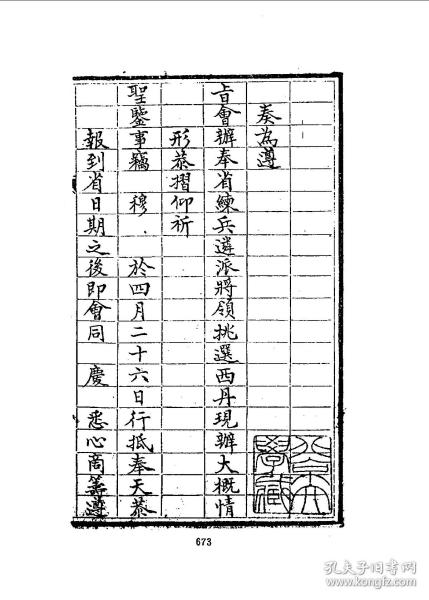 奏為遵
旨會辦奉省練兵遴派將領挑選西丹現辦大概情
形恭摺仰祈
聖鑒事竊 穆 於四月二十六日行抵奉天恭
報到省日期之後即會同 慶 悉心商籌遵
673
孔夫子旧书网
kongfz.com